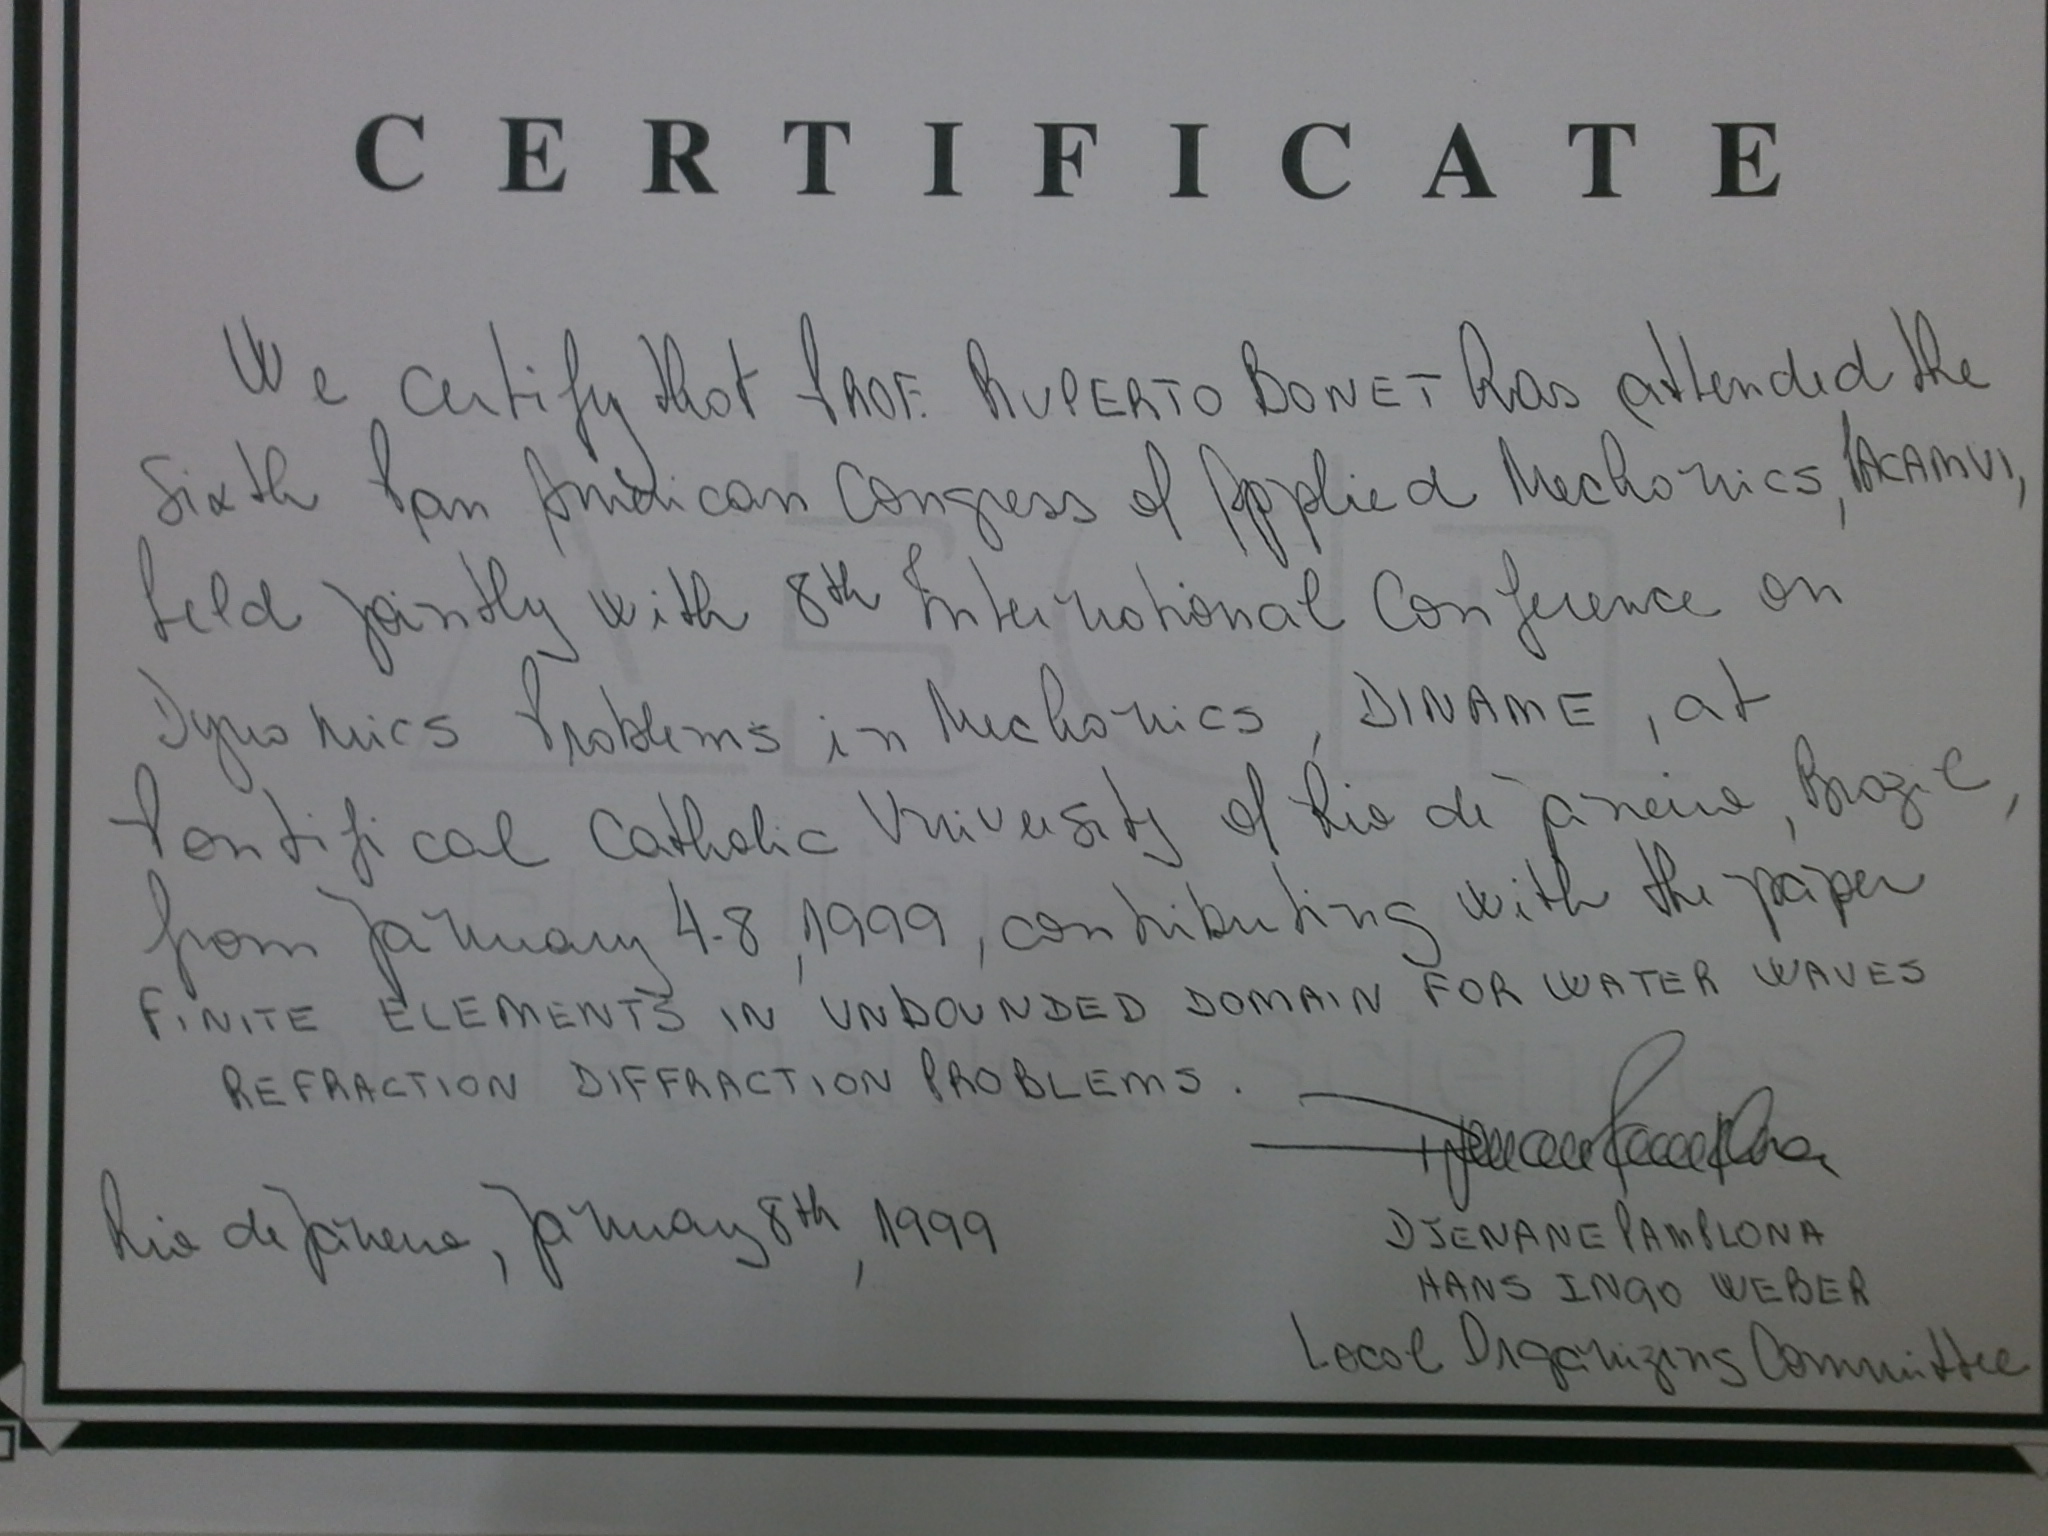 CERTIFICATE
We certify that PROF. RUPERTO BONET has attended the
Sixth Pan American Congress of Applied Mechanics, PACAM VI,
held jointly with 8th International Conference on
Dynamics Problems in Mechanics, DINAME, at
Pontifical Catholic University of Rio de Janeiro, Brazil,
from January 4-8, 1999, contributing with the paper
FINITE ELEMENTS IN UNBOUNDED DOMAIN FOR WATER WAVES
REFRACTION DIFFRACTION PROBLEMS.
Rio de Janeiro, January 8th, 1999
DJENANE PAMPLONA
HANS INGO WEBER
Local Organizing Committee